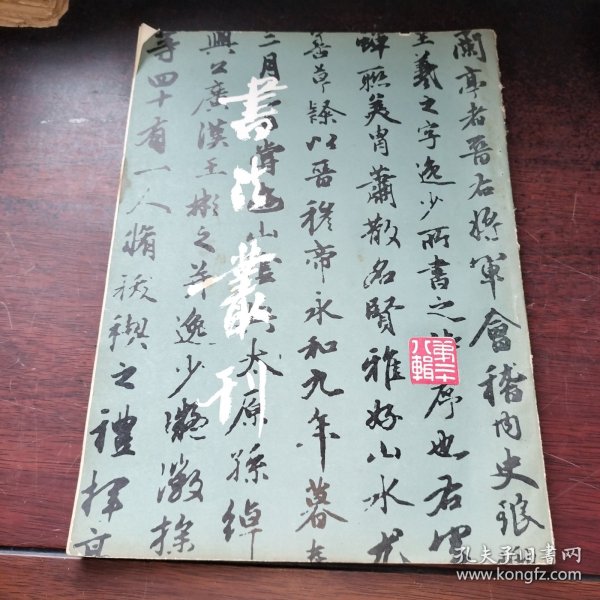 蘭亭者晋右将軍會稽内史琅
王羲之字逸少所書之詩序也右軍
蟬聯美胄蕭散名賢雅好山水尤
善草隸以晋穆帝永和九年暮春
月嘗山太原孫綽
興公廣漢王彬之并逸少凝徽操
等四十有一人脩祓禊之禮揮
書法叢刊
第二十八輯
孔夫子旧书网
www.kongfz.com